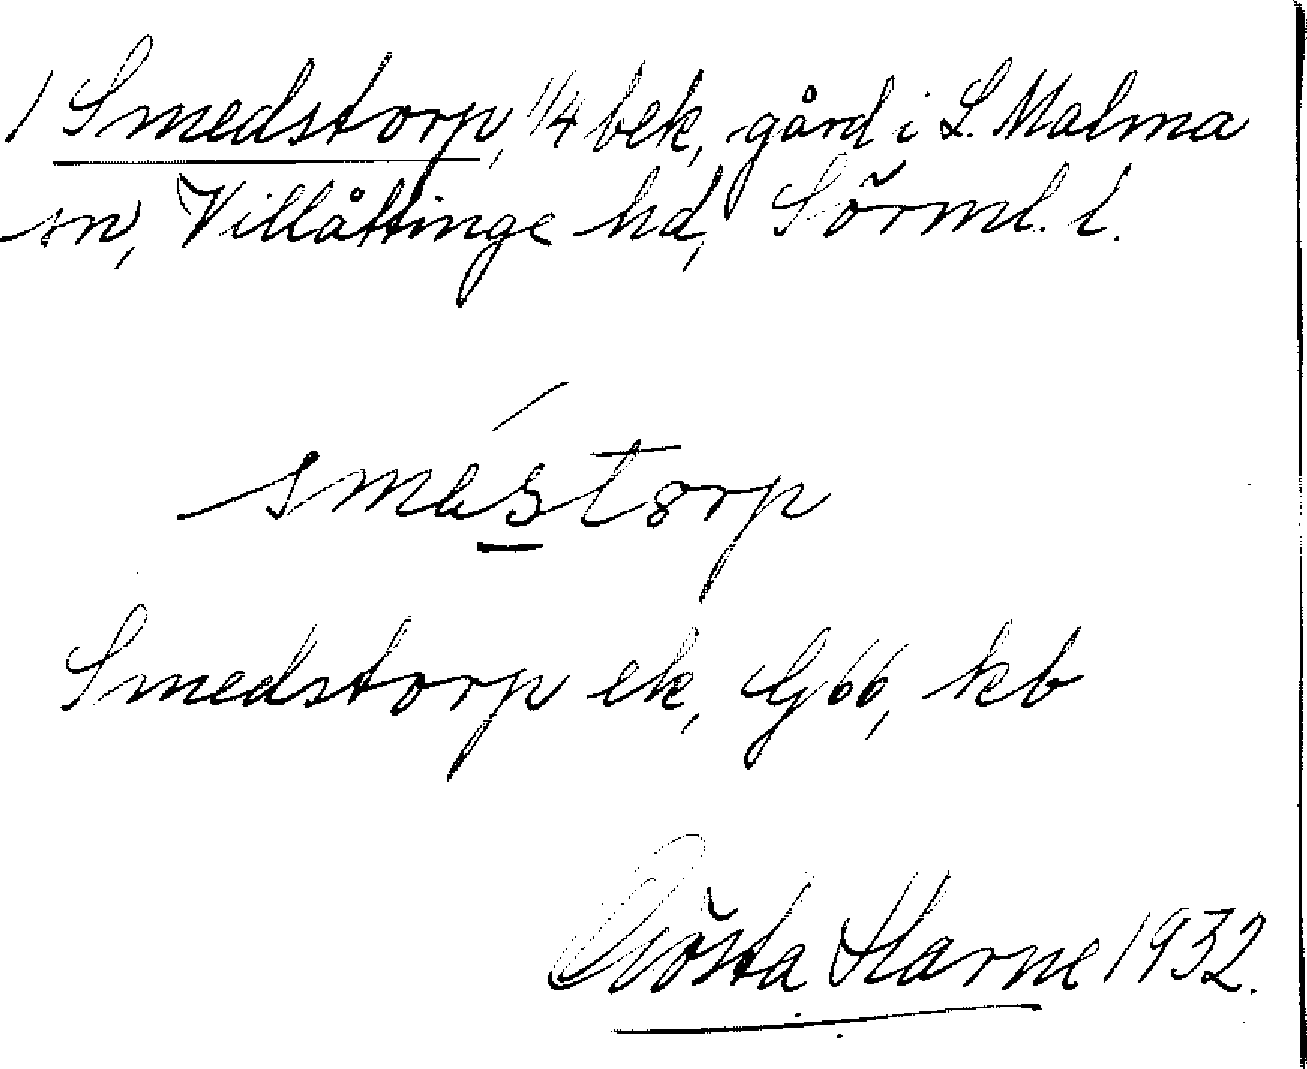 1 Smedstorp, 1/4 bek, gård i L. Malma
sn, Villåttinge hd, Sörml. l.
sméstorp
Smedstorp ek, G66, kb
Gösta Harne 1932.